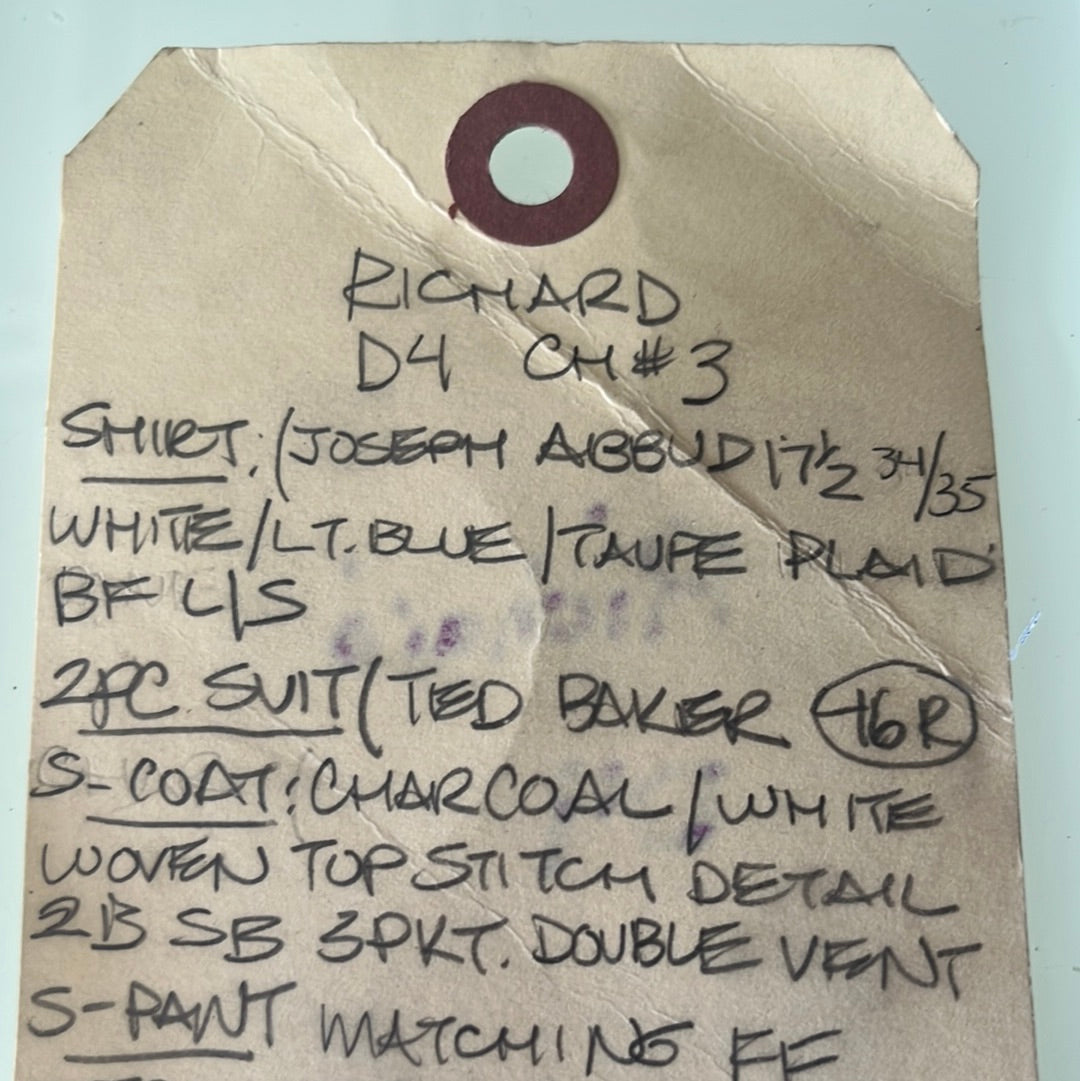 RICHARD
D4 CH#3
SHIRT:(JOSEPH ABBUD 17½ 34/35
WHITE/LT.BLUE/TAUPE PLAID
BF L/S
2PC SUIT(TED BAKER 46R
S-COAT:CHARCOAL/WHITE
WOVEN TOPSTITCH DETAIL
2B SB 3PKT. DOUBLE VENT
S-PANT MATCHING FF